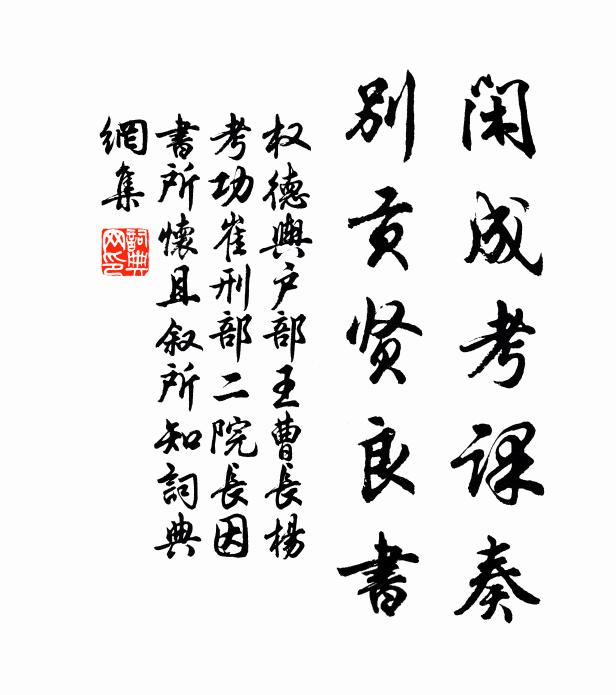 闲成考课奏
别贡贤良书
权德舆户部王曹长杨
考功崔刑部二院长因
書所懷且叙所知詞典
網集
詞典網印